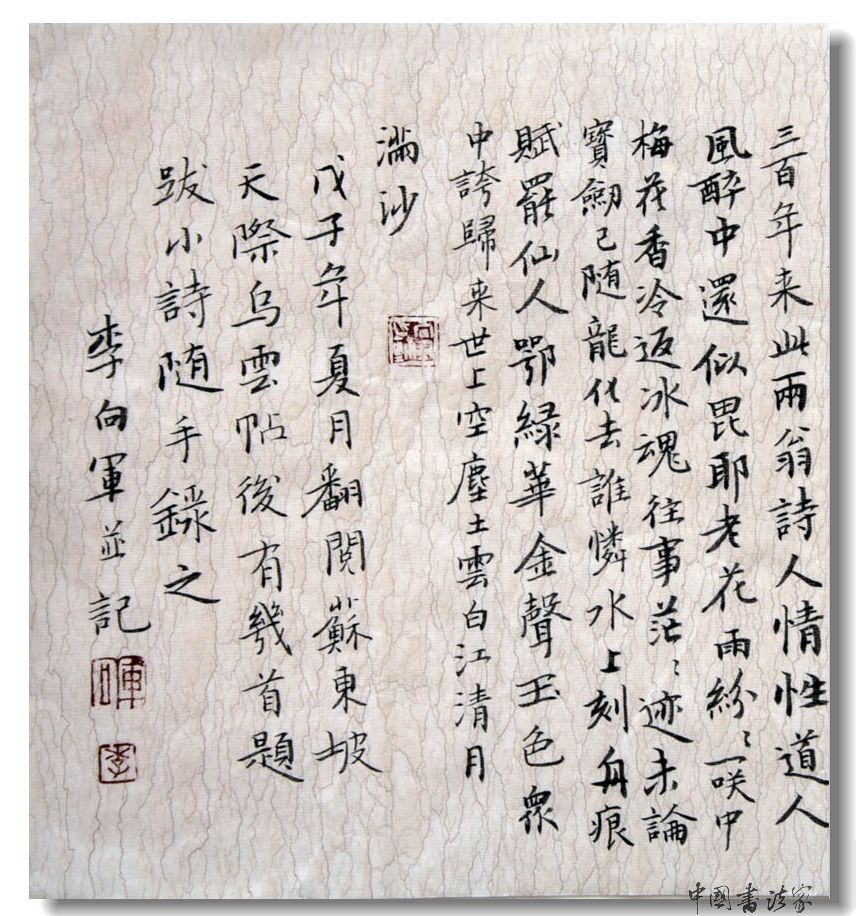 三百年来此兩翁詩人情性道人
風醉中還似毘耶老花雨紛〻一咲中
梅花香冷返冰魂往事茫〻迹未論
寶劒已随龍化去誰憐水上刻舟痕
賦罷仙人鄂緑華金聲玉色衆
中誇歸来世上空塵土雲白江清月
滿沙
戊子年夏月翻閱蘇東坡
天際烏雲帖後有幾首題
跋小詩随手錄之
李向軍並記
中国书法家